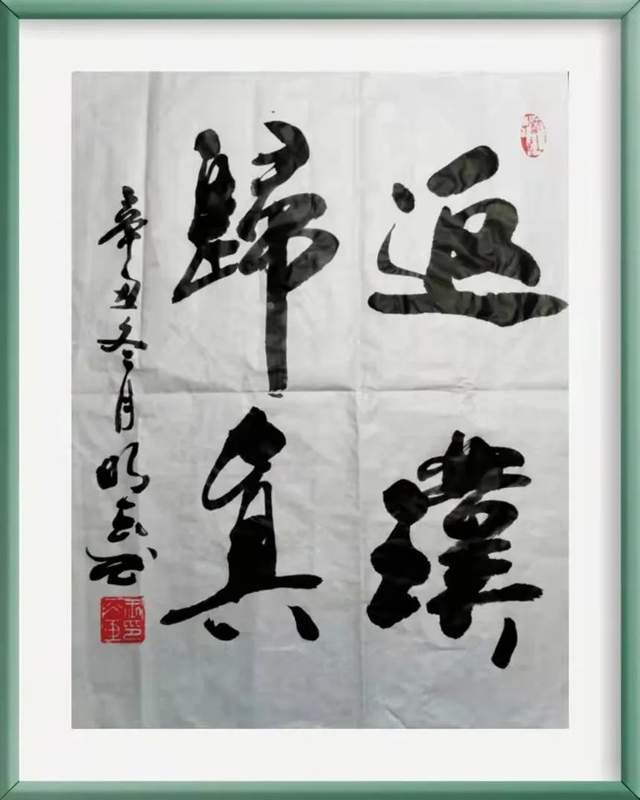 返璞
歸真
辛丑冬月明志书